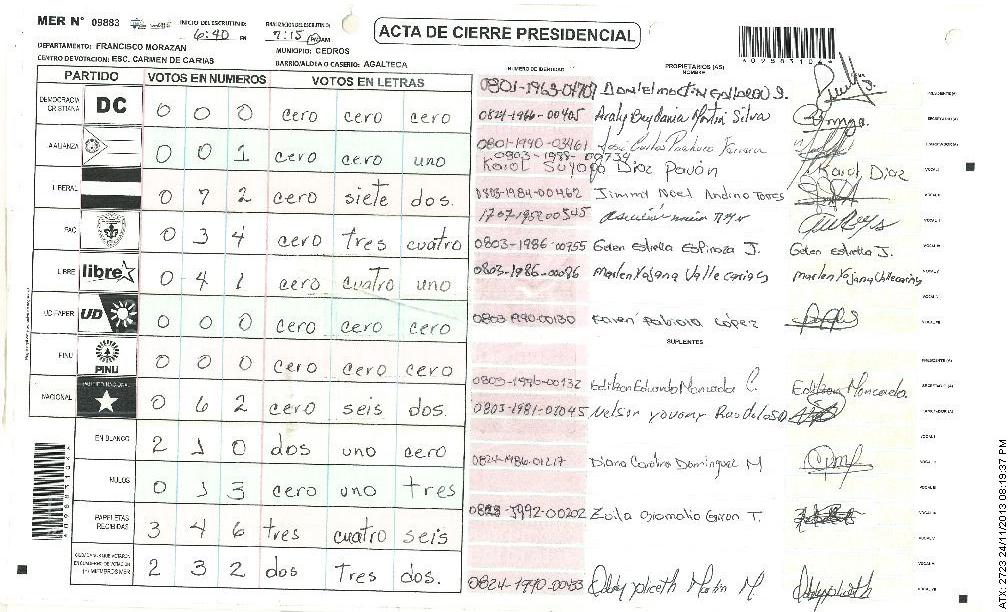 MER N° 09883 INICIO DEL ESCRUTINIO: 6:40 FINALIZACION DEL ESCRUTINIO: 7:15 PM
ACTA DE CIERRE PRESIDENCIAL
DEPARTAMENTO: FRANCISCO MORAZAN MUNICIPIO: CEDROS
CENTRO DE VOTACION: ESC. CARMEN DE CARIAS BARRIO/ALDEA O CASERIO: AGALTECA
PARTIDO VOTOS EN NUMEROS VOTOS EN LETRAS NUMERO DE IDENTIDAD PROPIETARIOS (AS) NOMBRE
DEMOCRACIA CRISTIANA DC 0 0 0 cero cero cero
ALIANZA 0 0 1 cero cero uno
LIBERAL 0 7 2 cero siete dos.
PAC 0 3 4 cero tres cuatro
LIBRE libre 0 4 1 cero cuatro uno
UD-FAPER UD 0 0 0 cero cero cero
PINU PINU 0 0 0 cero cero cero
NACIONAL 0 6 2 cero seis dos.
EN BLANCO 2 1 0 dos uno cero
NULOS 0 1 3 cero uno tres
PAPELETAS RECIBIDAS 3 4 6 tres cuatro seis
2 3 2 dos tres dos.
Daniel Martin Gallardo S.
0824-1966-00405
0801-1990-03461 Jose Carlos Pacheco
0803-1988-00734
Karol Suyapa Diaz Pavón Karol Diaz
0803-1984-00462 Jimmy Noel Andino Torres
0803-1986-00755 Geten Estrella Espinoza J. Geten Estrella J.
0803-1986-00096 Marlen Yojana Valle Carias Marlen Yojana Valle Carias
0803-1990-00130 López
SUPLENTES
0803-1996-00132 Edilson Eduardo Moncada C. Edilson Moncada
0803-1981-02045 Nelson Yovany
0824-1986-01217 Diana Carolina Dominguez M
1992-00202 Zoila Giron T.
0824-1990-00433 Martin M
ATX-2723 24/11/2013 08:19:37 PM